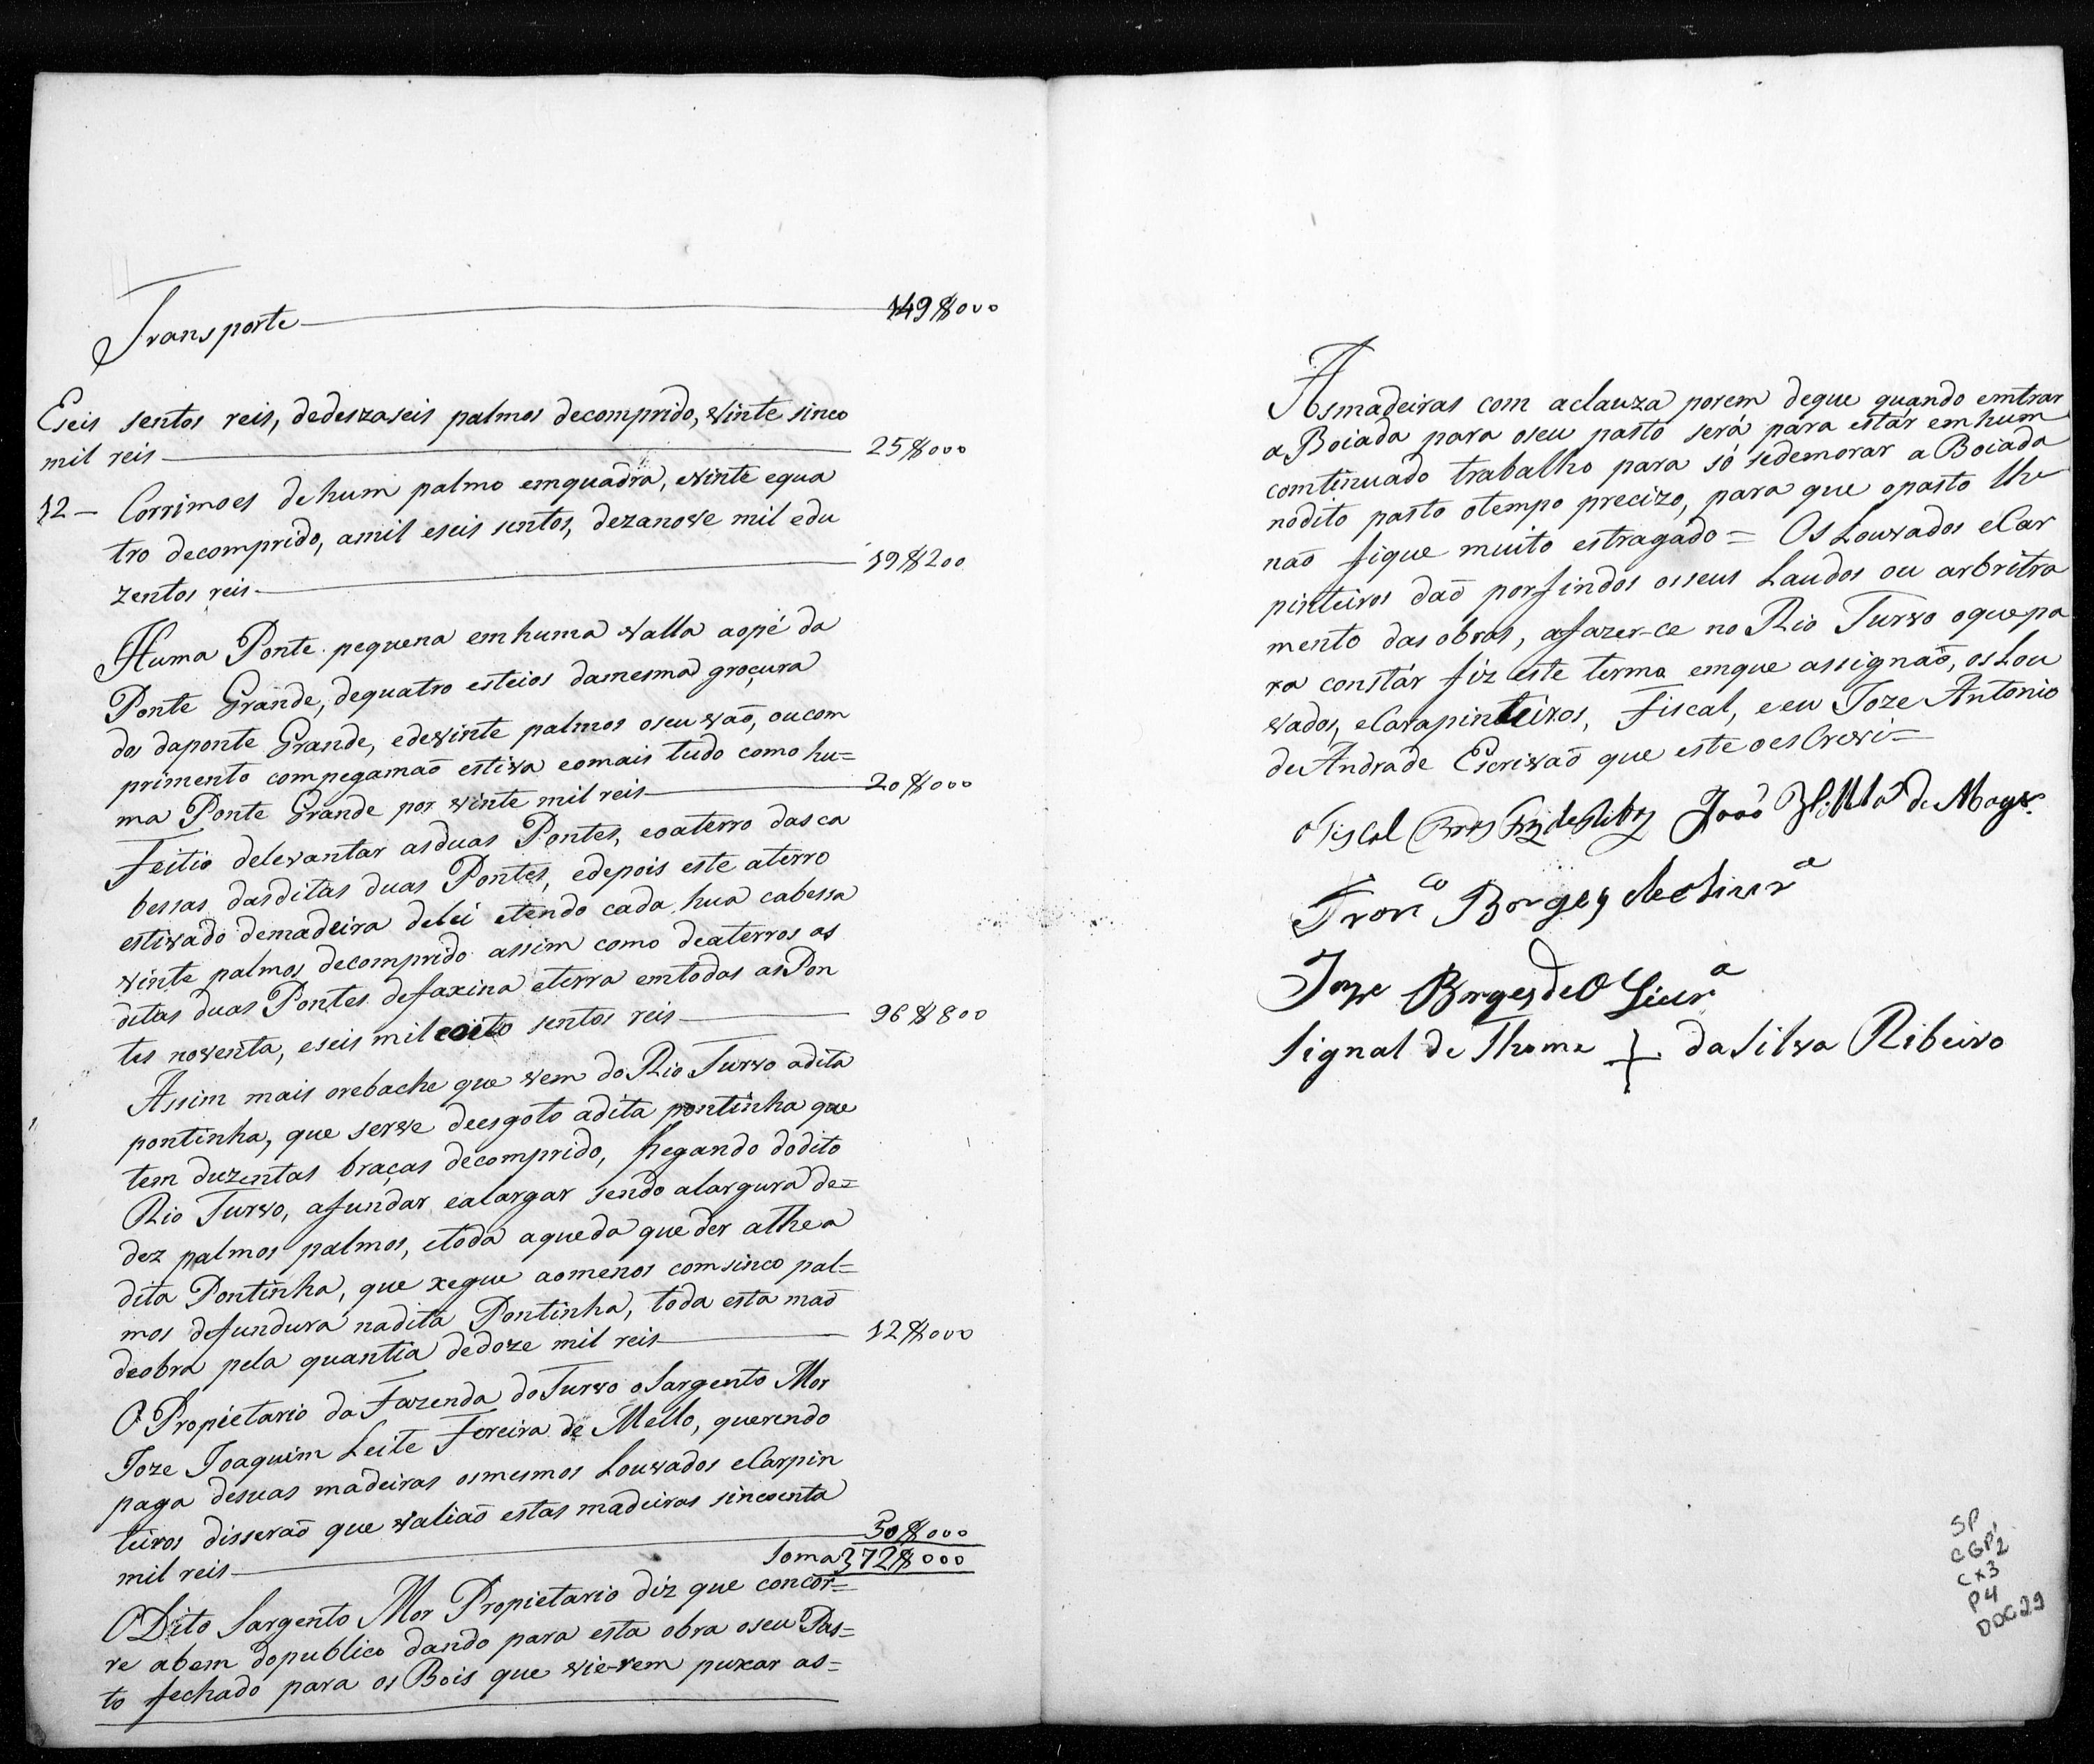 Transporte 149$000
Eseis sentos reis, dedeszaseis palmos decomprido, vinte sinco
mil reis 25$000
12 - Corrimoes de hum palmo emquadra, evinte equa
tro decomprido, amil eseis sentos, dezanove mil edu
zentos reis 19$200
Huma Ponte pequena em huma valla aopé da
Ponte Grande, dequatro esteios damesma groçura
dos daponte Grande, edevinte palmos oseu vaõ, oucom
primento compegamaõ estiva eomais tudo como hu=
ma Ponte Grande por vinte mil reis 20$000
Feitio delevantar asduas Pontes, eoaterro dasca
bessas dasditas duas Pontes, edepois este aterro
estivado demadeira delei etendo cada hua cabessa
vinte palmos decomprido assim como deaterros as
ditas duas Pontes defaxina eterra emtodas asPon
tes noventa, eseis mil eoito sentos reis 96$800
Assim mais orebache que vem do Rio Turvo adita
pontinha, que serve deesgoto adita pontinha que
tem duzentas braças decomprido, pegando dodito
Rio Turvo, afundar ealargar sendo alargura de=
dez palmos palmos, etoda aqueda que der athe a
dita Pontinha, que xegue aomenos comsinco pal=
mos defundura nadita Pontinha, toda esta maõ
deobra pela quantia dedoze mil reis 12$000
O Propietario da Fazenda doTurvo oSargento Mor
Joze Joaquim Leite Fereira de Mello, querendo
paga desuas madeiras osmesmos Louvados eCarpin
teiros disseraõ que valiaõ estas madeiras sincoenta
mil reis 50$000
Soma 372$000
ODito Sargento Mor Propietario diz que concor=
re abem dopublico dando para esta obra oseu Pas=
to fechado para os Bois que vie-rem puxar as=
Asmadeiras com aclauza porem deque quando emtrar
a Boiada para oseu pasto será para estár em hum
comtinuado trabalho para só sedemorar a Boiada
nodito pasto otempo precizo, para que opasto lhe
naõ fique muito estragado = Os Louvados eCar
pinteiros daõ porfindos osseus Laudos ou arbritra
mento dasobras, afazer-ce no Rio Turvo oquepa
ra constár fiz este termo emque assignaõ, osLou
vados, eCarapinteiros, Fiscal, eeu Joze Antonio
deAndrade Escrivaõ que este oescrevi=
o Fiscal João de
Franco Borges deolivra
Joze Borges de Olivra
Signal de Thome + daSilva Ribeiro
SP
CGP2
Cx3
P4
DOC29